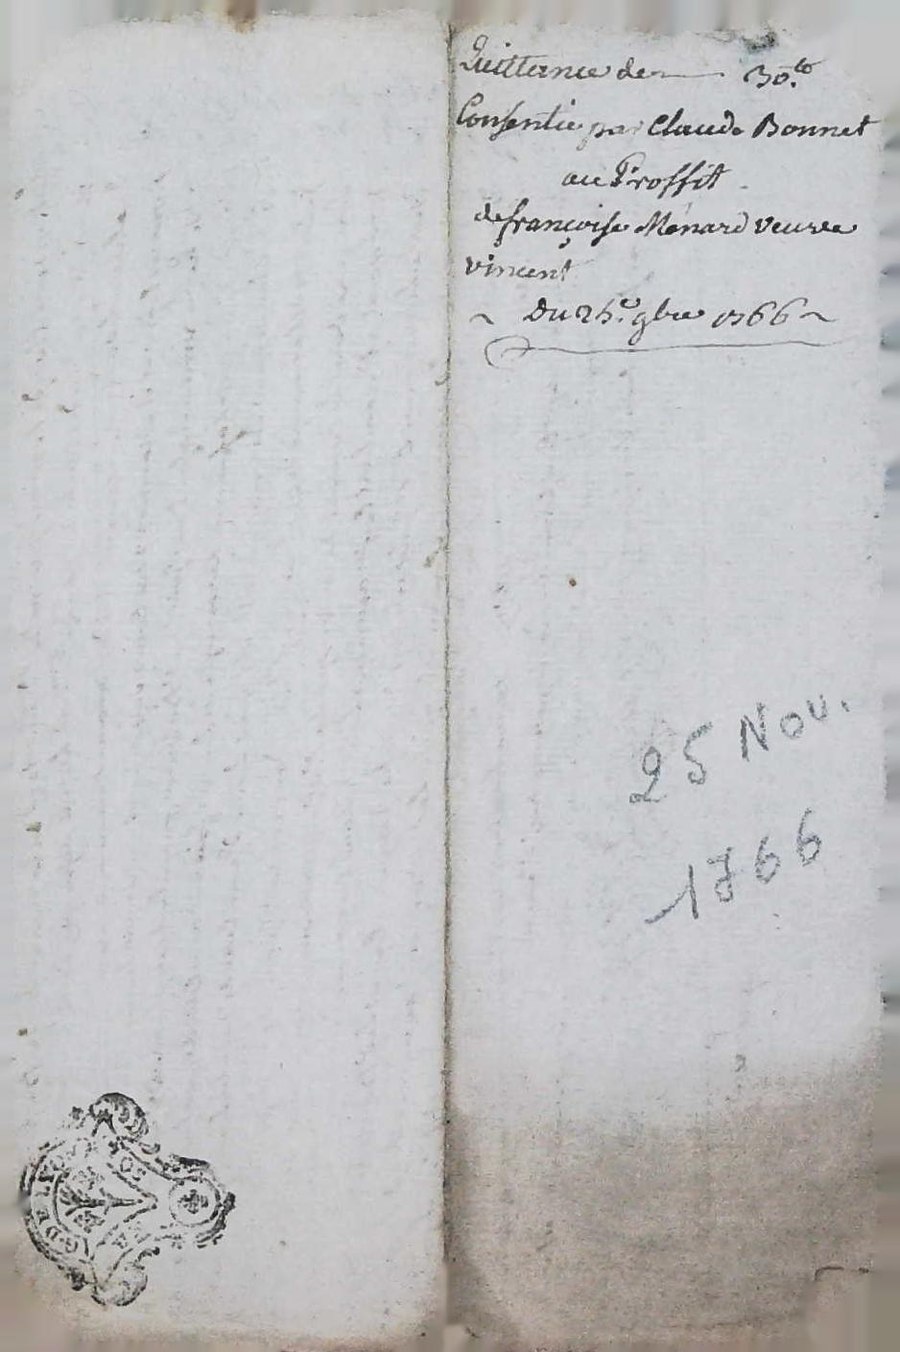 Quittance de 30.lt
Consentie par Claude Bonnet
au Proffit
de françoise Menard veuve
vincent
~ Du 25.e 9bre 1766 ~
25 Nov.
1766
G DE LY